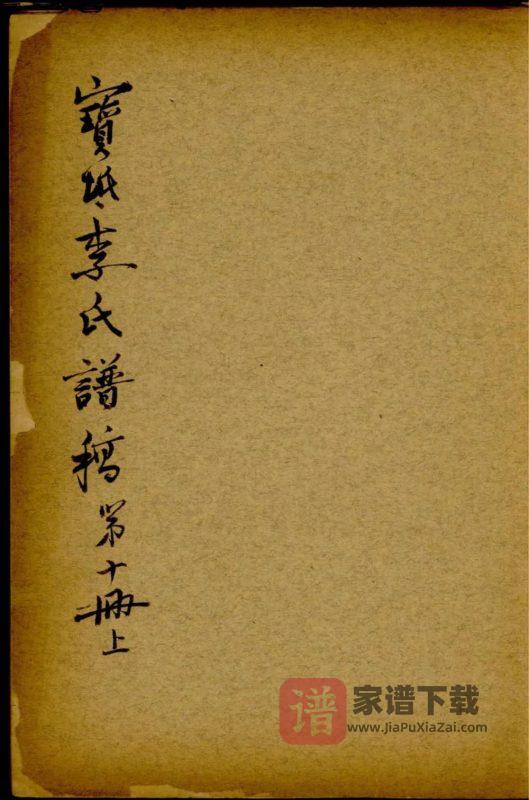 寶坻李氏譜稿第十冊上
谱 家谱下载
www.JiaPuXiaZai.com